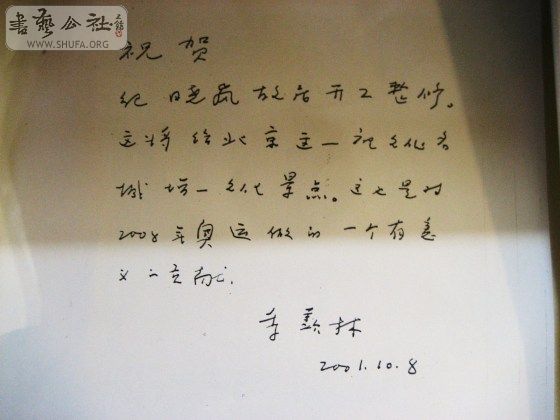 書藝公社
WWW.SHUFA.ORG
祝贺
纪晓岚故居开工整修。
这将给北京这一文化名
城增一文化景点。这也是对
2008年奥运做的一个有意
义的贡献。
季羡林
2001.10.8